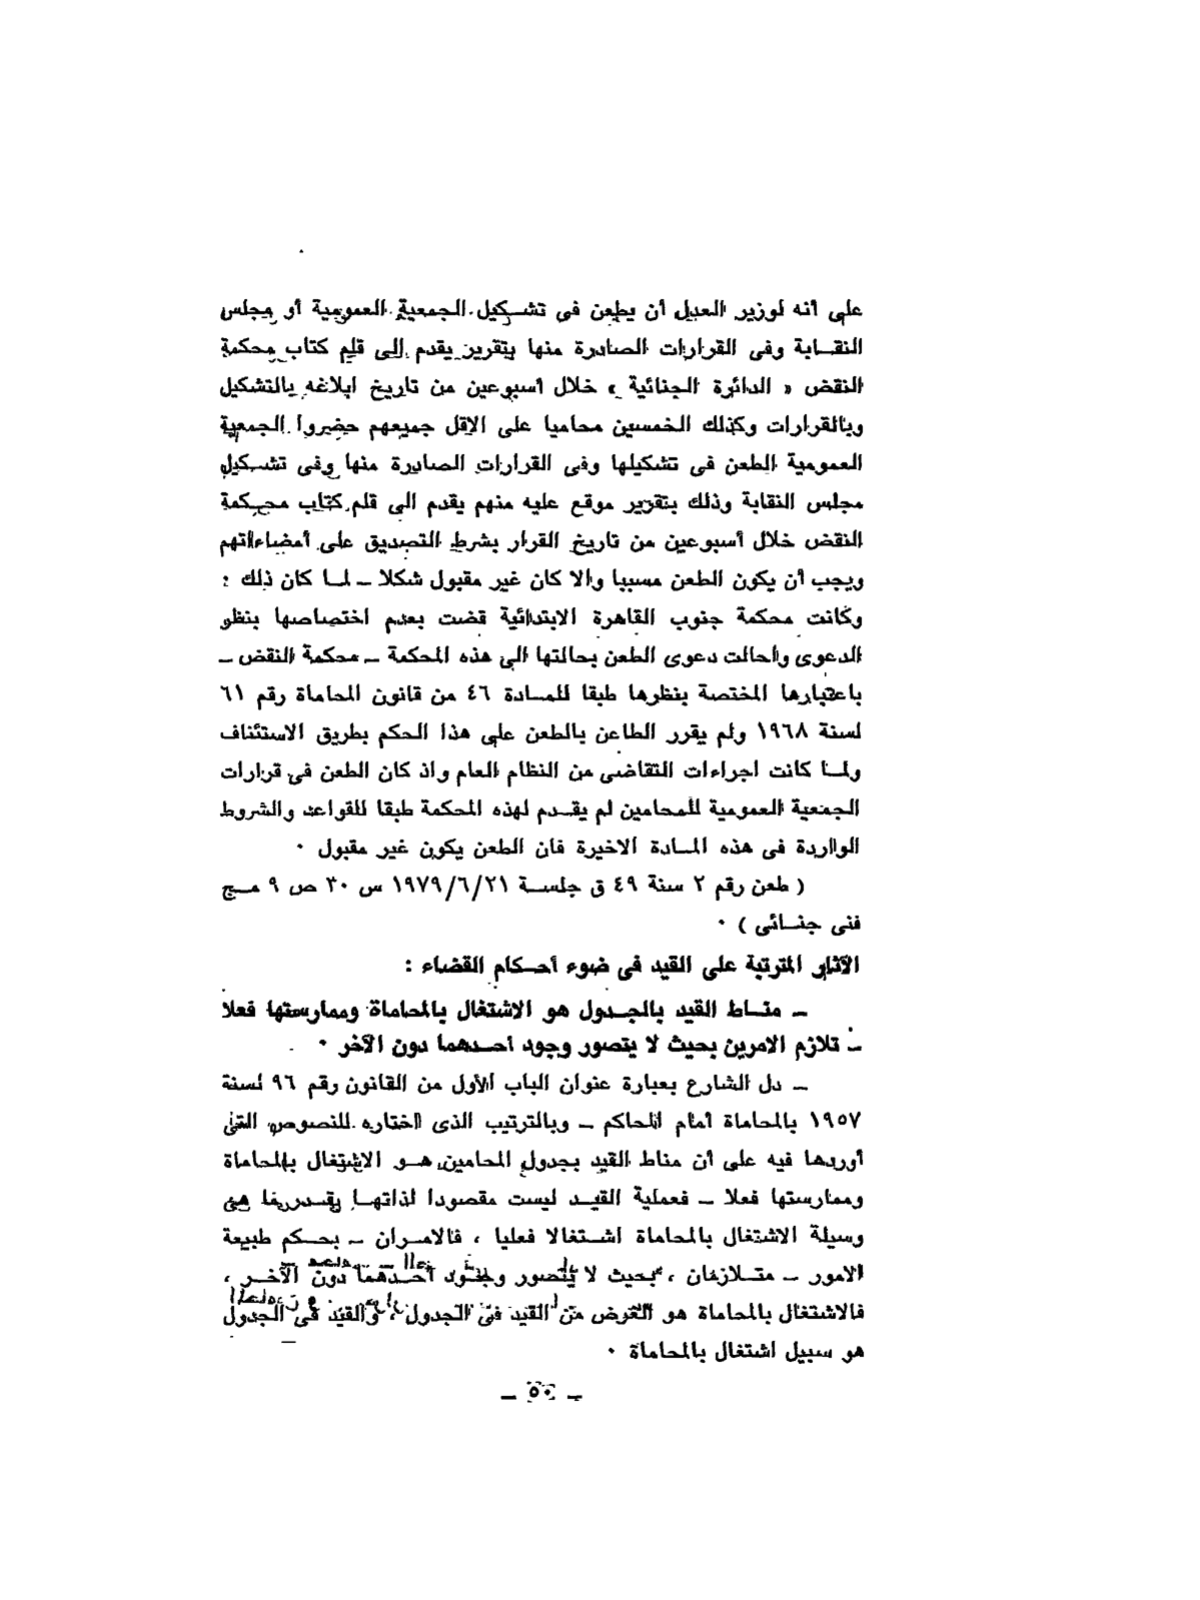 على أنه لوزير العدل أن يطعن فى تشكيل الجمعية العمومية أو مجلس
النقابة وفى القرارات الصادرة منها بتقرير يقدم الى قلم كتاب محكمة
النقض « الدائرة الجنائية » خلال أسبوعين من تاريخ ابلاغه بالتشكيل
وبالقرارات وكذلك الخمسين محاميا على الاقل جميعهم حضروا الجمعية
العمومية الطعن فى تشكيلها وفى القرارات الصادرة منها وفى تشكيل
مجلس النقابة وذلك بتقرير موقع عليه منهم يقدم الى قلم كتاب محكمة
النقض خلال أسبوعين من تاريخ القرار بشرط التصديق على أمضاءاتهم
ويجب أن يكون الطعن مسببا والا كان غير مقبول شكلا ــ لما كان ذلك :
وكانت محكمة جنوب القاهرة الابتدائية قضت بعدم اختصاصها بنظر
الدعوى واحالت دعوى الطعن بحالتها الى هذه المحكمة ــ محكمة النقض ــ
باعتبارها المختصة بنظرها طبقا للمادة ٤٦ من قانون المحاماة رقم ٦١
لسنة ١٩٦٨ ولم يقرر الطاعن بالطعن على هذا الحكم بطريق الاستئناف
ولما كانت اجراءات التقاضى من النظام العام واذ كان الطعن فى قرارات
الجمعية العمومية للمحامين لم يقدم لهذه المحكمة طبقا للقواعد والشروط
الواردة فى هذه المادة الاخيرة فان الطعن يكون غير مقبول ٠
( طعن رقم ٢ سنة ٤٩ ق جلسة ١٩٧٩/٦/٢١ س ٣٠ ص ٩ مج
فنى جنائى ) ٠
الآثار المترتبة على القيد فى ضوء أحكام القضاء :
ــ مناط القيد بالجدول هو الاشتغال بالمحاماة وممارستها فعلا
ــ تلازم الامرين بحيث لا يتصور وجود احدهما دون الآخر ٠
ــ دل الشارع بعبارة عنوان الباب الأول من القانون رقم ٩٦ لسنة
١٩٥٧ بالمحاماة أمام المحاكم ــ وبالترتيب الذى اختاره للنصوص التى
أوردها فيه على أن مناط القيد بجدول المحامين هو الاشتغال بالمحاماة
وممارستها فعلا ــ فعملية القيد ليست مقصودا لذاتها بقدر ما هى
وسيلة الاشتغال بالمحاماة اشتغالا فعليا ، فالامران ــ بحكم طبيعة
الامور ــ متلازمان ، بحيث لا يتصور وجود أحدهما دون الآخر ،
فالاشتغال بالمحاماة هو الغرض من القيد فى الجدول ، والقيد فى الجدول
هو سبيل اشتغال بالمحاماة ٠
ــ ٥٠ ــ